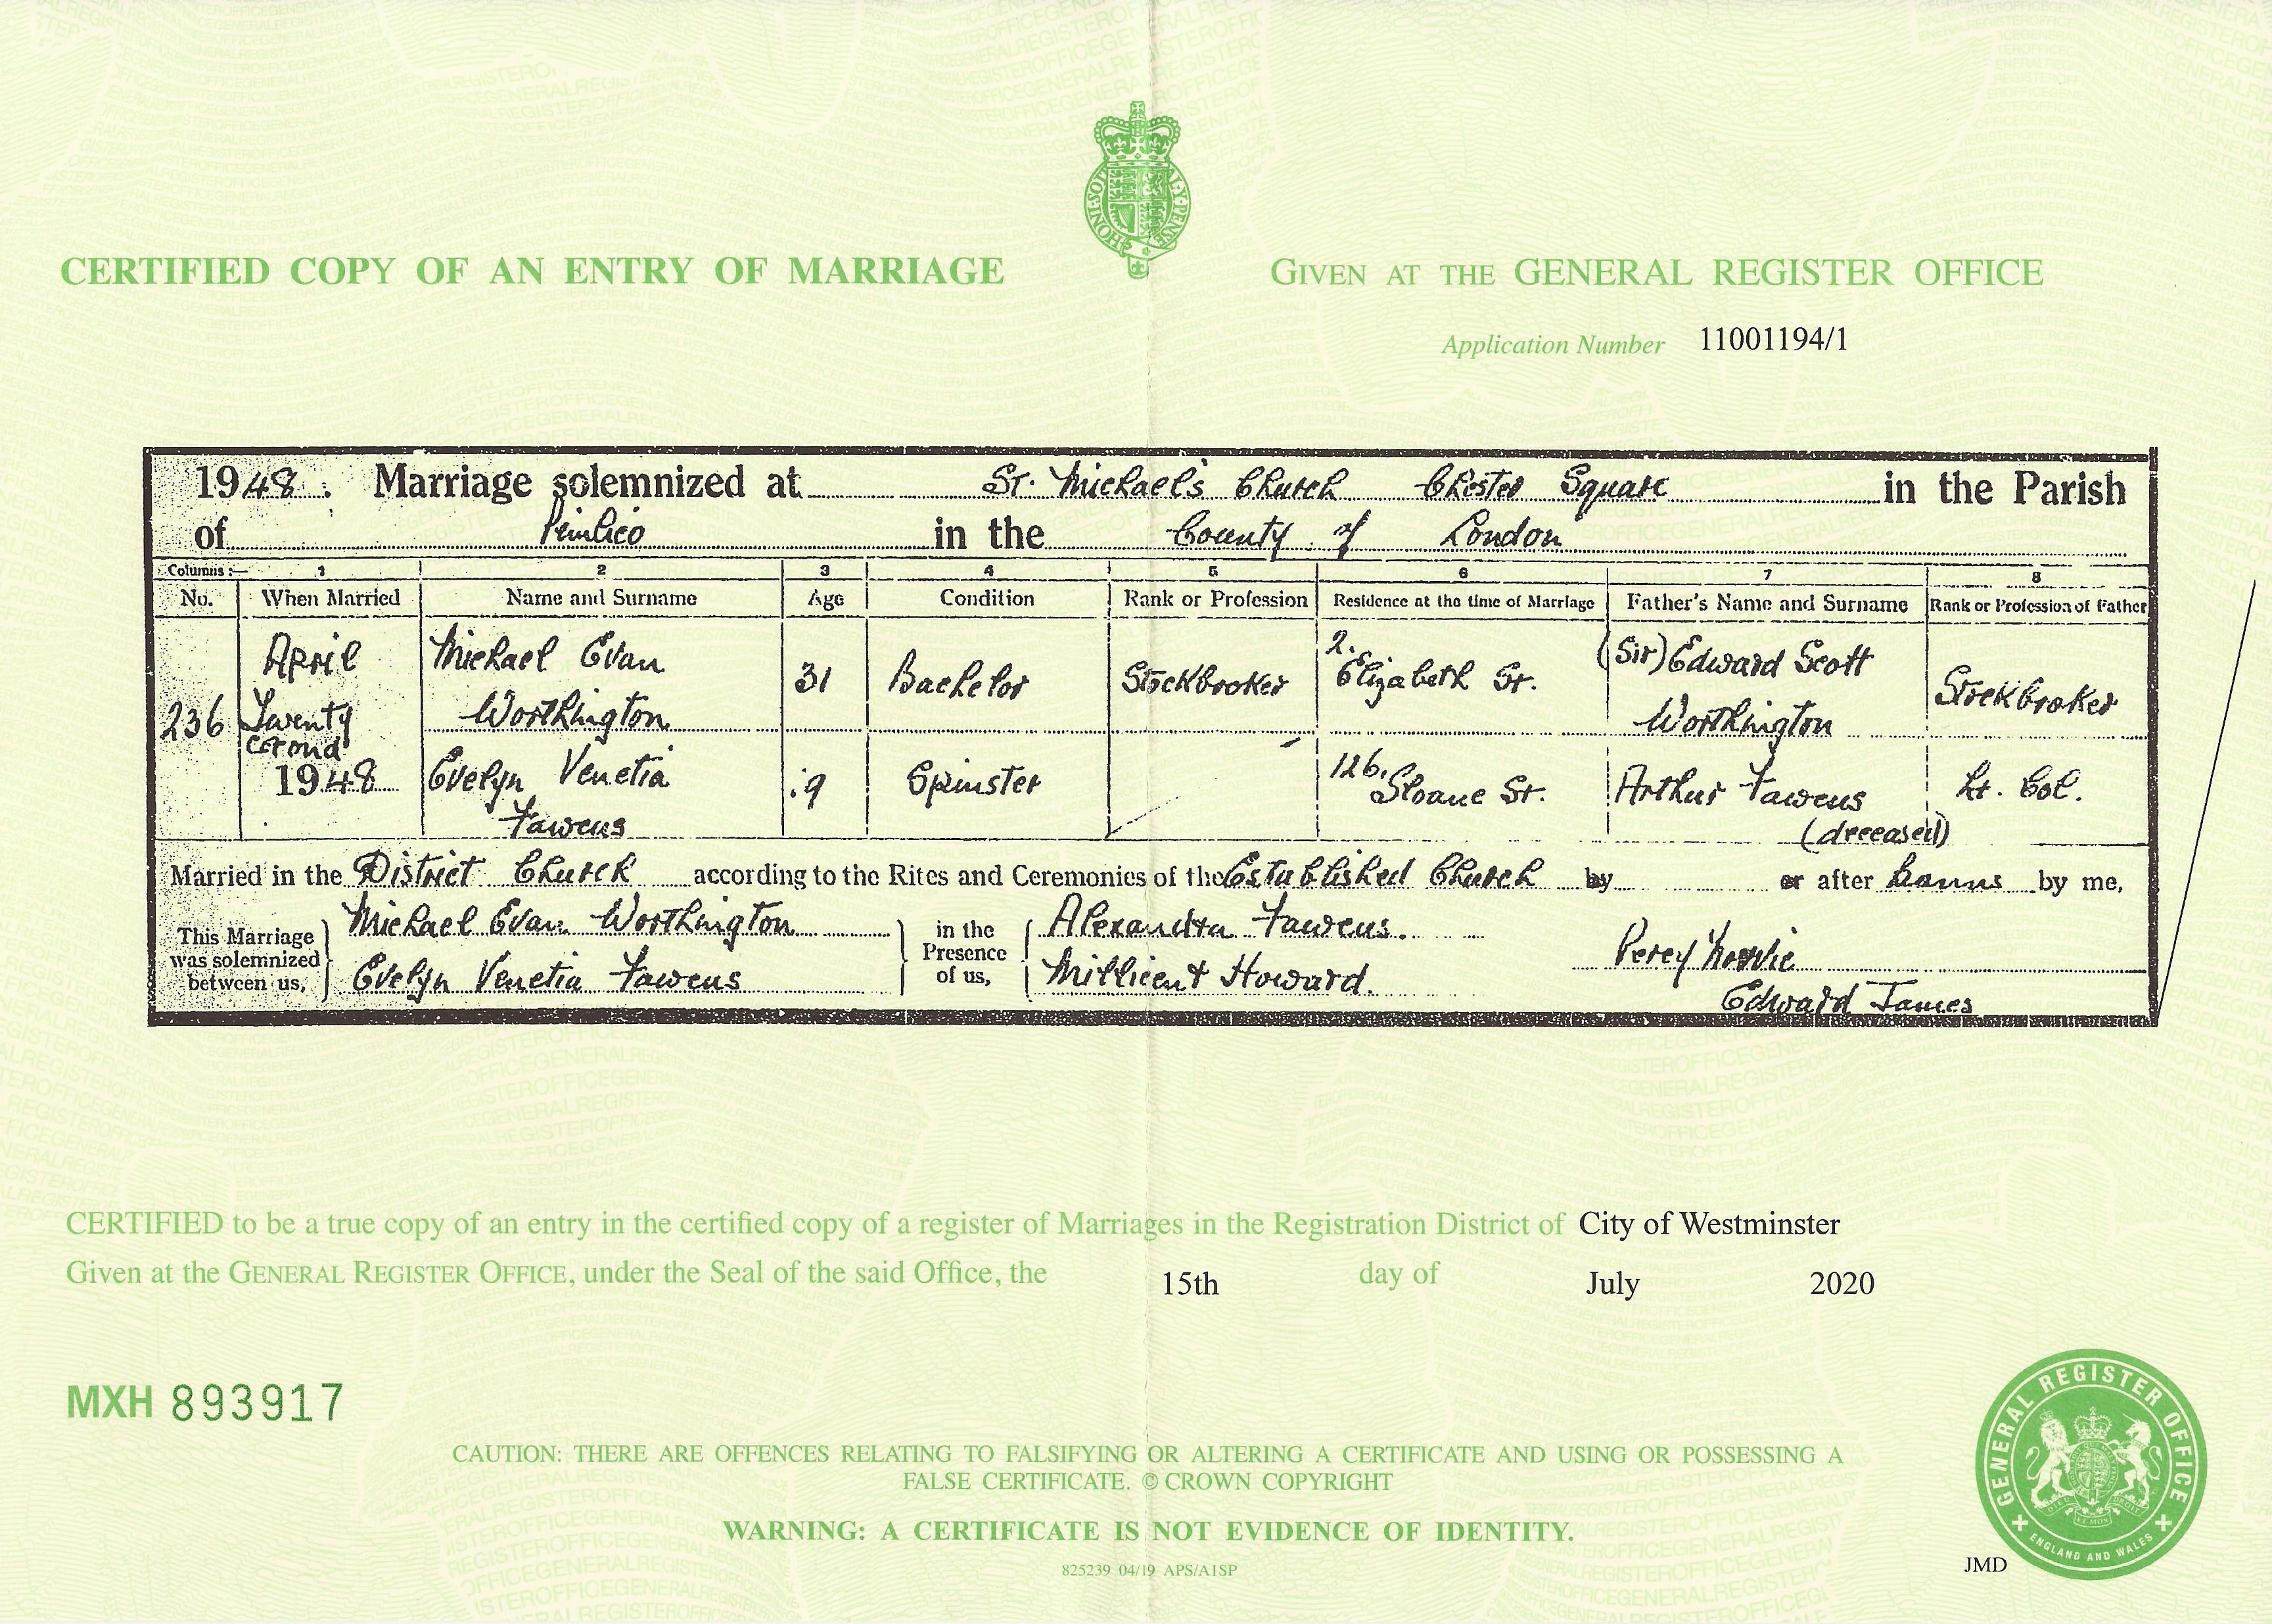 HONI SOIT QUI MAL Y PENSE
CERTIFIED COPY OF AN ENTRY OF MARRIAGE
GIVEN AT THE GENERAL REGISTER OFFICE
Application Number 11001194/1
1948. Marriage solemnized at St. Michael's Church Chester Square in the Parish
of Pimlico in the County of London
Columns:— 1 2 3 4 5 6 7 8
No. When Married Name and Surname Age Condition Rank or Profession Residence at the time of Marriage Father's Name and Surname Rank or Profession of Father
236 April Twenty second 1948
Michael Evan Worthington 31 Bachelor Stockbroker 2. Elizabeth St. (Sir) Edward Scott Worthington Stockbroker
Evelyn Venetia Fawcus 19 Spinster 126, Sloane St. Arthur Fawcus (deceased) Lt. Col.
Married in the District Church according to the Rites and Ceremonies of the Established Church by or after banns by me,
This Marriage was solemnized between us, Michael Evan Worthington
Evelyn Venetia Fawcus
in the Presence of us, Alexandra Fawcus.
Millicent Howard.
Percy
Edward James
CERTIFIED to be a true copy of an entry in the certified copy of a register of Marriages in the Registration District of City of Westminster
Given at the GENERAL REGISTER OFFICE, under the Seal of the said Office, the 15th day of July 2020
MXH 893917
CAUTION: THERE ARE OFFENCES RELATING TO FALSIFYING OR ALTERING A CERTIFICATE AND USING OR POSSESSING A
FALSE CERTIFICATE. © CROWN COPYRIGHT
WARNING: A CERTIFICATE IS NOT EVIDENCE OF IDENTITY.
825239 04/19 APS/A1SP
JMD
GENERAL REGISTER OFFICE
ENGLAND AND WALES